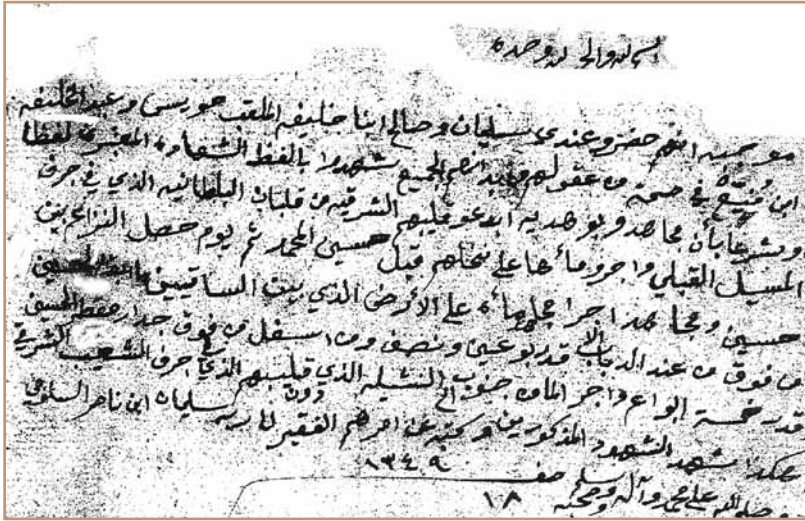 الحمد لله وحده
موجبه انهم حضرو عندي سليمان وصالح ابنا خليفه الملقب حويسي وعبد الخليفه
ابن في صحة من عقولهم وابدانهم الجميع شهدوا بالفظ الشهادة المعتبرة لفظا
وشرعا بأن مجاهد وبو هديه ابدعو قليبهم الشرقيه من قلبان السلطانيه الذي في جرف
المسيل القبلي واجروماءها على نخلهم قبل حسين المحمد ثم يوم حصل النزاع بين
حسين ومجاهد اجرا مجاهد ماءه على الأرض الذي بين الساقيين
من فوق من عند الدباب الا قدر بوعين ونصف ومن اسفل من فوق جدار حفيظ
قدر خمسة ابواع واجر الماء من جنوب النثيله الذي قليبهم الذي في جرف الشعيب الشرقي
هكذا شهد الشهود المذكورين وكتبه عن امرهم الفقير الى ربه سليمان ابن ناصر السلومي
وصلى الله على محمد وآله وصحبه وسلم صفر ١٣٤٩
١٨